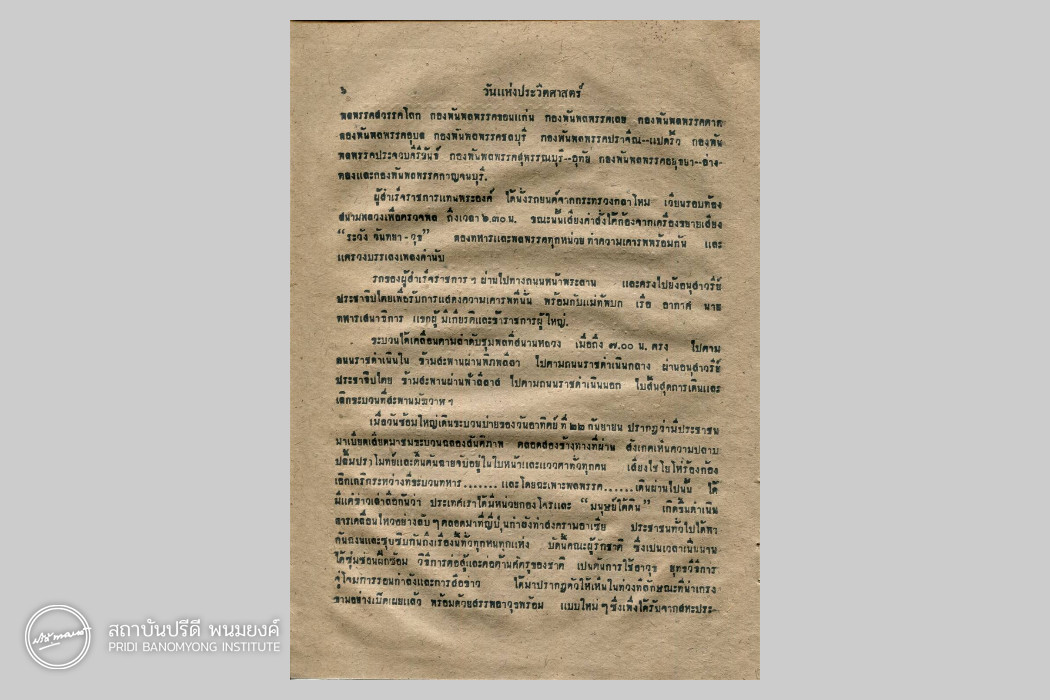 ๖
วันแห่งประวัติศาสตร์
พลพรรคสวรรคโลก กองพันพลพรรคขอนแก่น กองพันพลพรรคเลย กองพันพลพรรคตาก
กองพันพลพรรคอุบล กองพันพลพรรคชลบุรี กองพันพลพรรคปราจีณ--แปดริ้ว กองพัน
พลพรรคประจวบคีรีขันธ์ กองพันพลพรรคสุพรรณบุรี--อุทัย กองพันพลพรรคอยุธยา--อ่าง-
ทองและกองพันพลพรรคกาญจนบุรี.
ผู้สำเร็จราชการแทนพระองค์ ได้นั่งรถยนต์จากกระทรวงกลาโหม เวียนรอบท้อง
สนามหลวงเพื่อตรวจพล ถึงเวลา ๖.๓๐ น. ขณะนั้นเสียงคำสั่งได้ก้องจากเครื่องขยายเสียง
“ระวัง วันทยา - วุธ” กองทหารและพลพรรคทุกหน่วย ทำความเคารพพร้อมกัน และ
แตรวงบรรเลงเพลงคำนับ
รถของผู้สำเร็จราชการ ฯ ผ่านไปทางถนนหน้าพระลาน และตรงไปยังอนุสาวรีย์
ประชาธิปไตยเพื่อรับการแสดงความเคารพที่นั้น พร้อมกับแม่ทัพบก เรือ อากาศ นาย
ทหารเสนาธิการ แขกผู้มีเกียรติและข้าราชการผู้ใหญ่.
ขะบวนได้เคลื่อนตามลำดับชุมพลที่สนามหลวง เมื่อถึง ๗.๐๐ น. ตรง ไปตาม
ถนนราชดำเนินใน ข้ามสะพานผ่านพิภพลีลา ไปตามถนนราชดำเนินกลาง ผ่านอนุสาวรีย์
ประชาธิปไตย ข้ามสะพานผ่านฟ้าลีลาศ ไปตามถนนราชดำเนินนอก ไปสิ้นสุดการเดินและ
เลิกขะบวนที่สะพานมัฆวาฬ ฯ
เมื่อวันซ้อมใหญ่เดินขะบวนบ่ายของวันอาทิตย์ ที่ ๒๒ กันยายน ปรากฏว่ามีประชาชน
มาเบียดเสียดมาชมขะบวนฉลองสันติภาพ ตลอดสองข้างทางที่ผ่าน สังเกตเห็นความปลาบ
ปลื้มปราโมทย์และตื่นตันฉายจับอยู่ในใบหน้าและแววตาทั่วทุกคน เสียงไชโยโห่ร้องก้อง
เอิกเกริกระหว่างที่ขะบวนทหาร....... และโดยฉะเพาะพลพรรค......เดินผ่านไปนั้น ได้
มีแต่ข่าวเล่าลือกันว่า ประเทศเราได้มีหน่วยกองโจรและ “มนุษย์ใต้ดิน” เกิดขึ้นดำเนิน
การเคลื่อนไหวอย่างลับ ๆ ตลอดมาที่ญี่ปุ่นกำลังทำสงครามอาเซีย ประชาชนทั่วไปได้พา
กันฉงนและซุบซิบกันถึงเรื่องนี้ทั่วทุกหนทุกแห่ง บัดนี้คณะผู้รักชาติ ซึ่งเป็นเวลาเนิ่นนาน
ได้ซุ่มซ่อนฝึกซ้อม วิธีการต่อสู้และต่อต้านศัตรูของชาติ เป็นต้นการใช้อาวุธ ยุทธวิธีการ
จู่โจมการรอนกำลังและการสื่อข่าว ได้มาปรากฏตัวให้เห็นในท่วงทีลักษณะที่น่าเกรง
ขามอย่างเปิดเผยแล้ว พร้อมด้วยสรรพอาวุธพร้อม แบบใหม่ ๆ ซึ่งเพิ่งได้รับจากสหะประ-
สถาบันปรีดี พนมยงค์
PRIDI BANOMYONG INSTITUTE